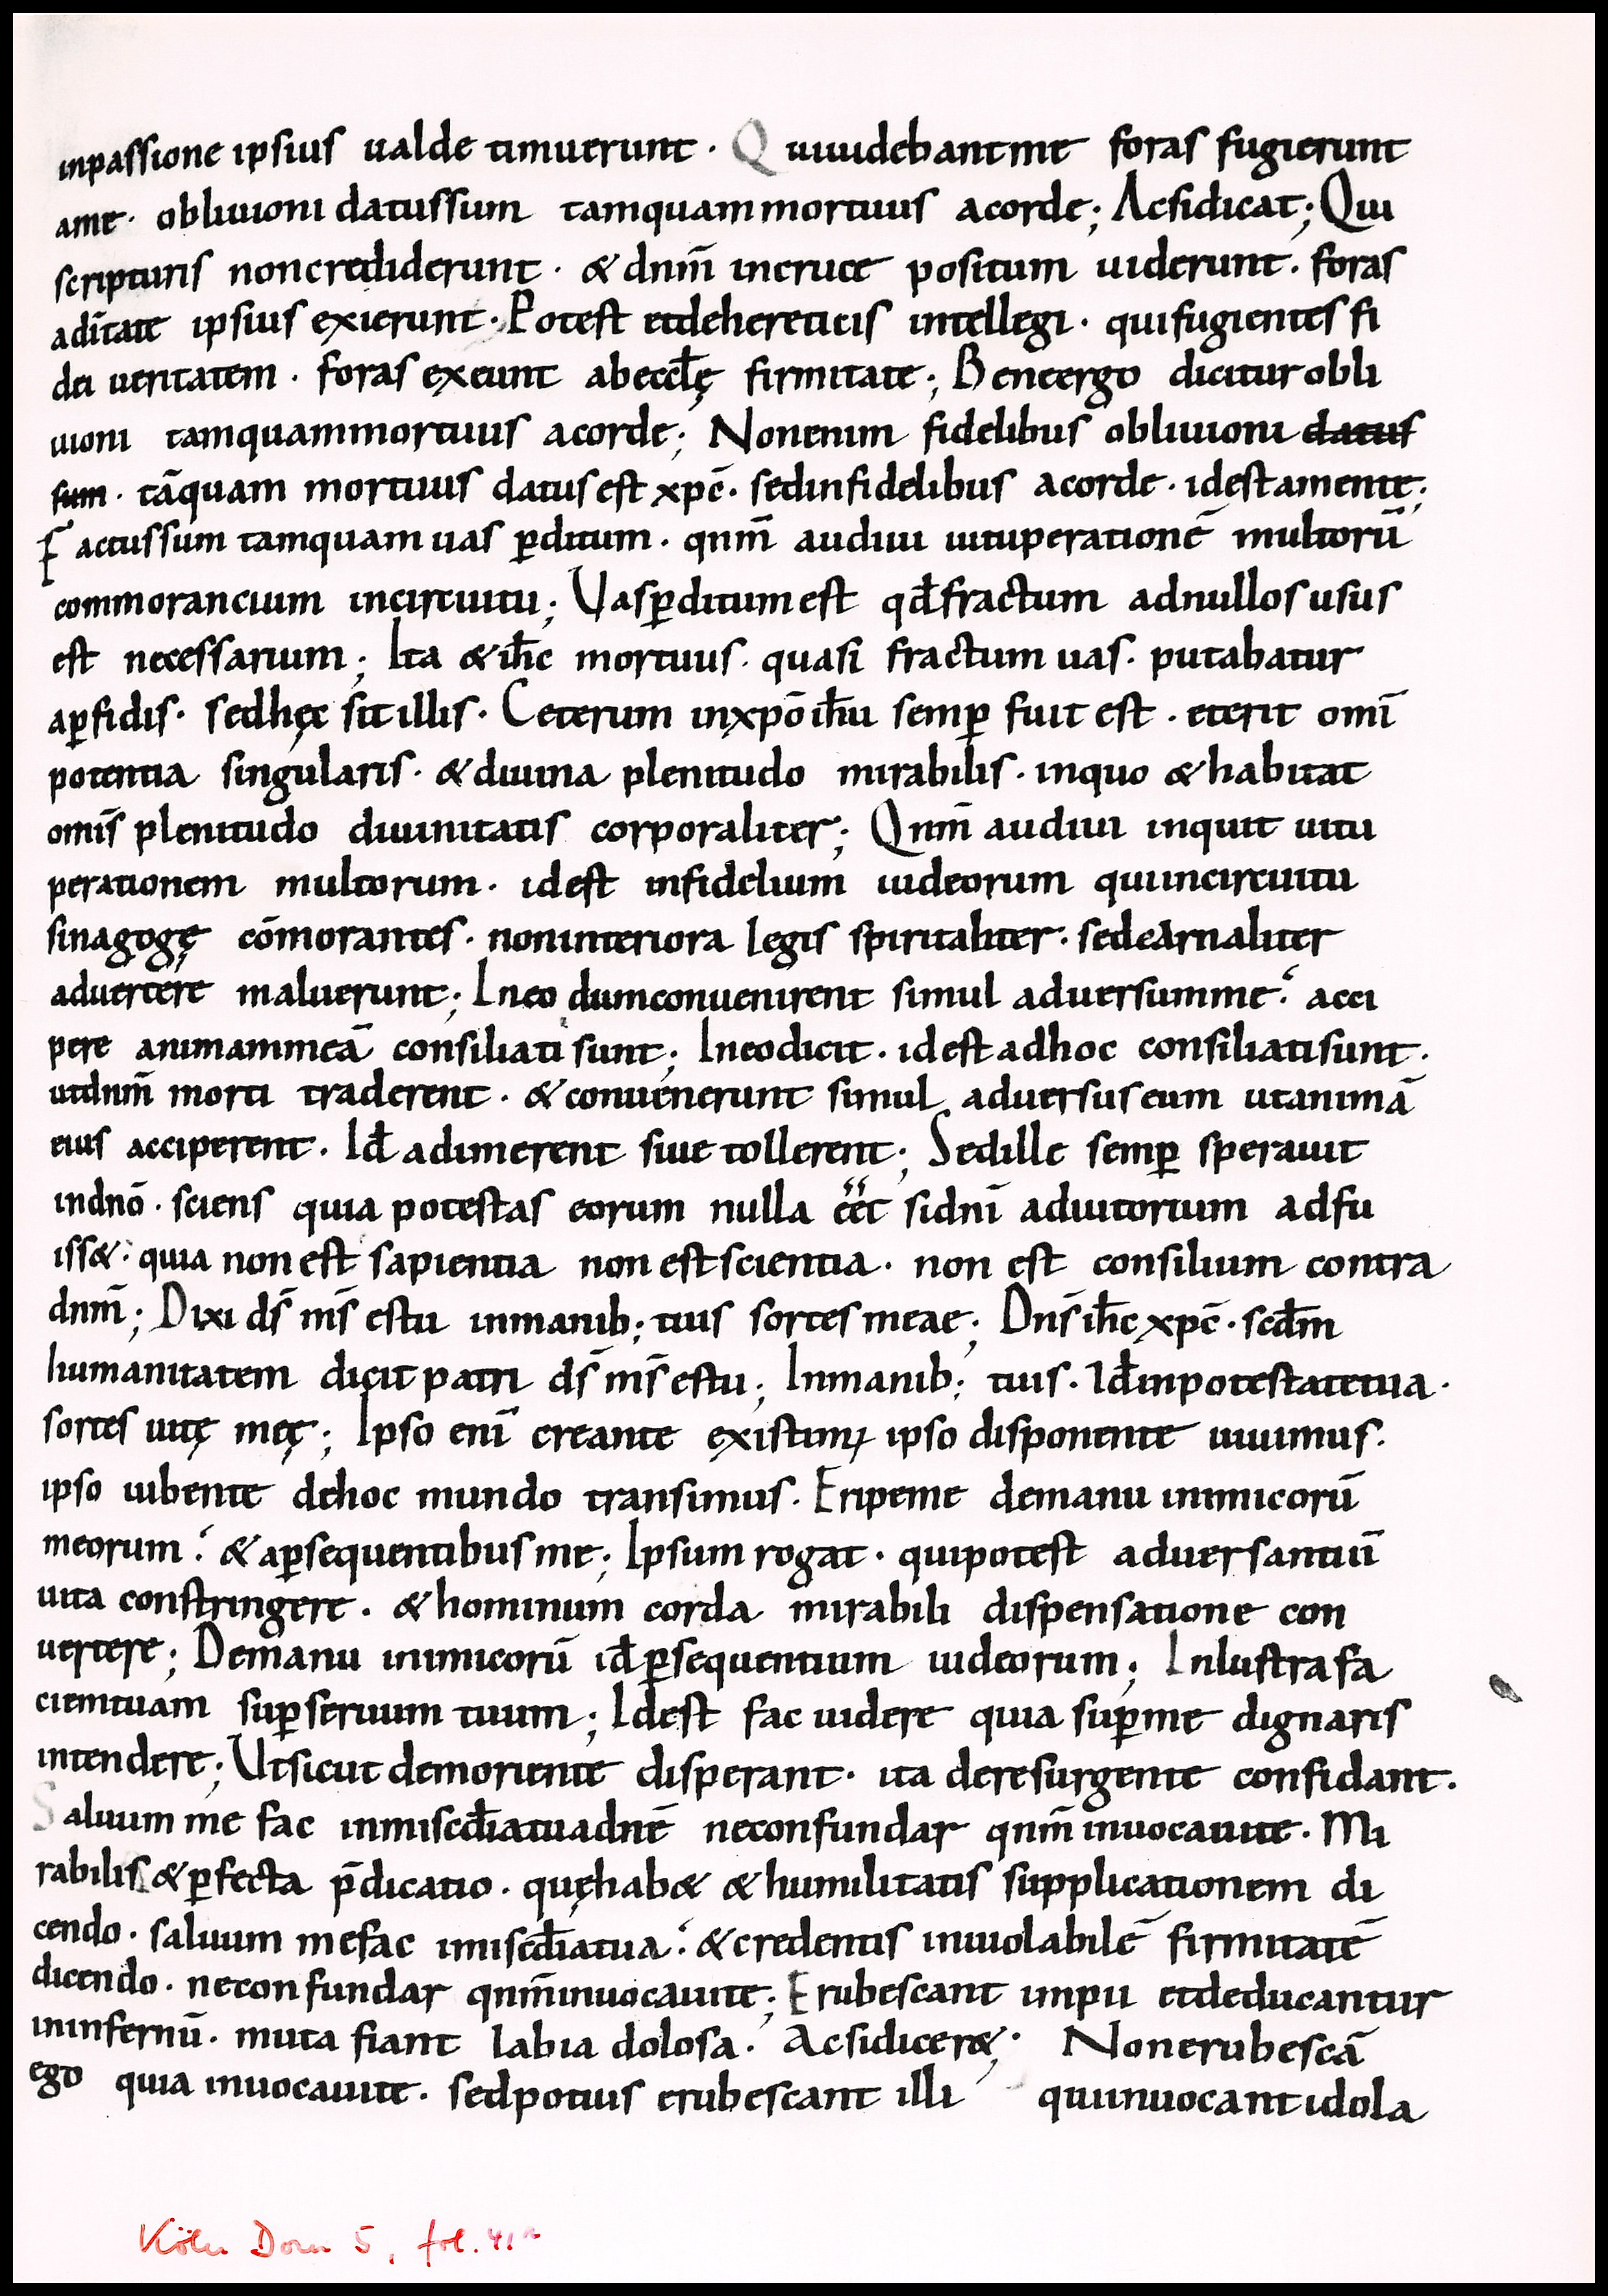 inpassione ipsius ualde timuerunt · Quiuidebantme foras fugierunt
ame · obliuioni datussum tamquammortuus acorde; Acsidicat; Qui
scripturis noncrediderunt · & dnm̄ incruce positum uiderunt · foras
aditate ipsius exierunt · Potest etdehereticis intellegi · quifugientes fi
dei ueritatem · foras exeunt abeccłę firmitate; Beneergo dicitur obli
uioni tamquammortuus acorde; Nonenim fidelibus obliuioni datus
sum · tāquam mortuus datus est xpc̄ · sedinfidelibus acorde · idestamente;
Factussum tamquam uas ꝑditum · qnm̄ audiui uituperationē multorū
commorancium incircuitu; Uasꝑditum est qđfractum adnullos usus
est necessarium; Ita & ih̄c mortuus · quasi fractum uas · putabatur
aꝑfidis · sedhęc sit illis · Ceterum inxpō ih̄u semꝑ fuit est · eterit omī
potentia singularis · & diuina plenitudo mirabilis · inquo & habitat
omīs plenitudo diuinitatis corporaliter; Qnm̄ audiui inquit uitu
perationem multorum · idest infidelium iudeorum quiincircuitu
sinagogę cōmorantes · noninteriora legis spiritaliter · sedcarnaliter
aduertere maluerunt; Ineo dumconuenirent simul aduersumme: acci
pere animammeā consiliati sunt; Ineodicit · idestadhoc consiliatisunt ·
utdnm̄ morti traderent · & conuenerunt simul aduersus eum utanimā
eius acciperent · Iđ adimerent siue tollerent; Sedille semꝑ sperauit
indnō · sciens quia potestas eorum nulla eēt sidnī adiutorium adfu
iss&: quia non est sapientia non est scientia · non est consilium contra
dnm̄; Dixi ds̄ ms̄ estu inmanib; tuis sortes meae; Dns̄ ih̄c xpc̄ · scđm
humanitatem dicit patri ds̄ ms̄ estu; Inmanib; tuis · Iđinpotestatetua ·
sortes uitę meę; Ipso enī creante existimꝰ ipso disponente uiuimus ·
ipso iubente dehoc mundo transimus · Eripeme demanu inimicorū
meorum: & aꝑsequentibus me; Ipsum rogat · quipotest aduersantiū
uita constringere · & hominum corda mirabili dispensatione con
uertere; Demanu inimicorū iđ ꝑsequentium iudeorum; Inlustra fa
ciemtuam suꝑ seruum tuum; Idest fac uidere quia suꝑme dignaris
intendere; Utsicut demoriente disperant · ita deresurgente confidant ·
Saluum me fac inmiscđiatuadnē neconfundar qnm̄ inuocauite · Mi
rabilis & ꝑfecta p̄dicatio · quęhab& & humilitatis supplicationem di
cendo · saluum mefac imiscđiatua: & credentis inuiolabilē firmitatē
dicendo · neconfundar qnm̄inuocauite; Erubescant impii etdeducantur
ininfernū · muta fiant labia dolosa · Acsidicer&; Nonerubescā
ego quia inuocauite · sedpotius erubescant illi quiinuocant idola
Köln Dom 5, fol. 41r